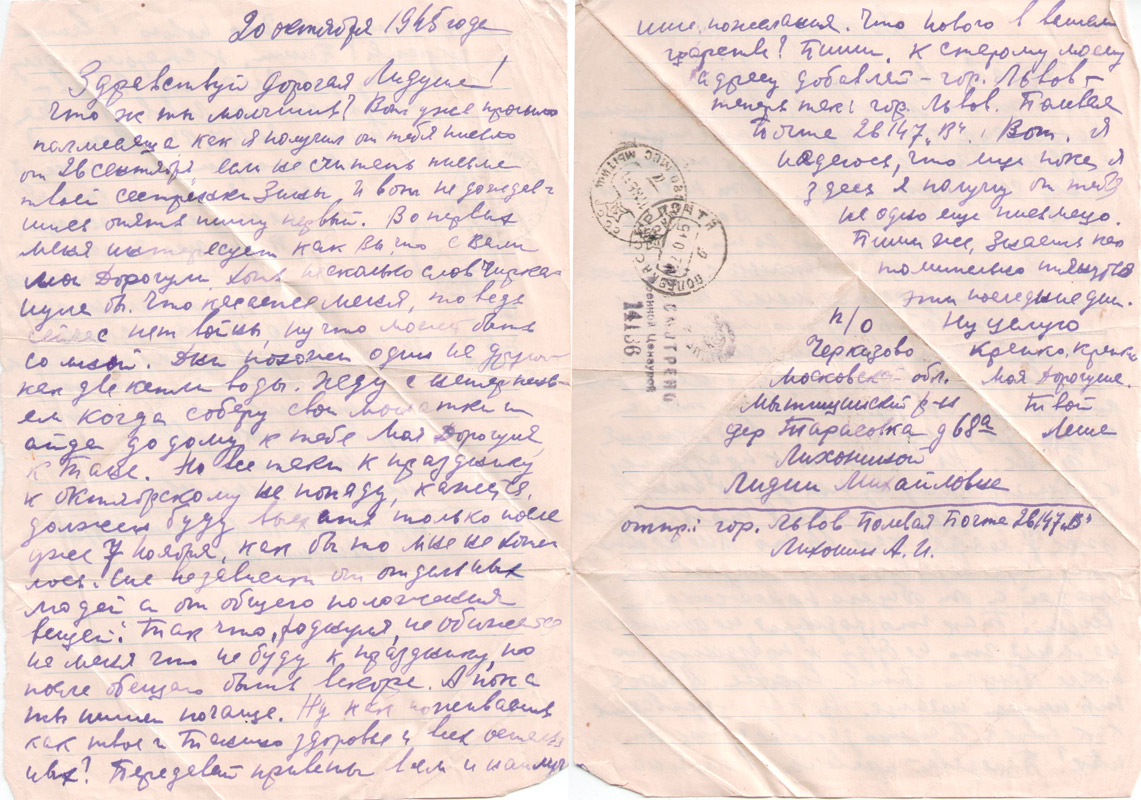 20 октября 1945 года
Здравствуй дорогая Лидуше!
Что ж ты молчишь? Вот уже прошло
полмесяца как я получил от тебя письмо
от 26 сентября если не считать письма
твоей сестренки Зины. И вот не дождав-
шись опять пишу первый. Во первых
меня интересует как вы что с вами
мои Дорогули, хоть несколько слов чирка-
нула бы. Что касается меня, то ведь
сейчас нет войны, ну что может быть
со мной. Дни похожи один на другой
как две капли воды. Жду с нетерпень-
ем когда соберу свои монатки и
айда до дому, к тебе Моя Дорогуля,
к Тане. Но все таки к празднику
к октябрьскому не попаду, кажется,
должен буду выехать только после
уже 7 ноября, как бы то мне не хоте-
лось. Сие независит от отдельных
людей а от общего положения
вещей. Так что, роднуля, не обижайся
на меня что не буду к празднику, но
после обещаю быть вскоре. А пока
ты пиши почаще. Ну как поживаешь
как твое и Танино здоровье и всех осталь
ных? Передавай приветы всем и наилуч
шие пожелания. Что нового в вашем
царстве? Пиши, к старому моему
адресу добавляй – гор. Львов –
теперь так: гор. Львов. Полевая
Почта 26147 „В“. Вот. Я
надеюсь, что еще пока я
здесь я получу от тебя
не одно еще письмецо.
Пиши же, знаешь как
томительно тянутся
эти последние дни.
Ну целую
Крепко, крепко
Моя Дорогуше.
Твой
Леше
п/о
Черкизово
Московской обл.
Мытищинский р-н
дер Тарасовка д 68а
Лихониной
Лидии Михайловне
отпр: гор. Львов Полевая Почта 26147 „В“
Лихонин А. И.
ПОЛЕВАЯ ПОЧТА
ПРОСМОТРЕНО
Военной Цензурой
14136